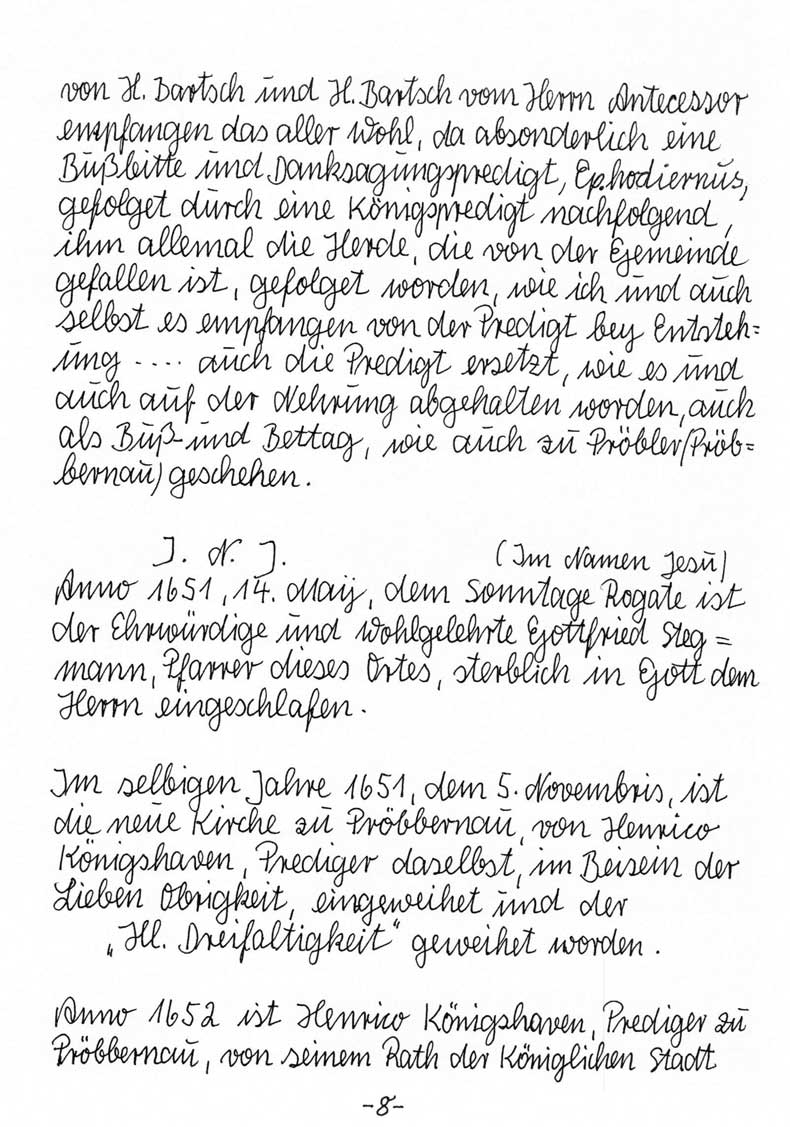 von H. Bartsch und H. Bartsch vom Herrn Antecessor
empfangen das aller Wohl, da absonderlich eine
Bußbitte und Danksagungspredigt, Ep.hodiernus,
gefolget durch eine Königspredigt nachfolgend,
ihm allemal die Herde, die von der Gemeinde
gefallen ist, gefolget worden, wie ich und auch
selbst es empfangen von der Predigt bey Entsteh=
ung .... auch die Predigt ersetzt, wie es und
auch auf der Nehrung abgehalten worden, auch
als Buß- und Bettag, wie auch zu Pröbler(Pröb=
bernau) geschehen.
J. N. J. (Im Namen Jesu)
Anno 1651, 14. Maij, dem Sonntage Rogate ist
der Ehrwürdige und Wohlgelehrte Gottfried Steg=
mann, Pfarrer dieses Ortes, sterblich in Gott dem
Herrn eingeschlafen.
Im selbigen Jahre 1651, dem 5. Novembris, ist
die neue Kirche zu Pröbbernau, von Henrico
Königshaven, Prediger daselbst, im Beisein der
Lieben Obrigkeit, eingeweihet und der
„Hl. Dreifaltigkeit“ geweihet worden.
Anno 1652 ist Henrico Königshaven, Prediger zu
Pröbbernau, von seinem Rath der Königlichen Stadt
-8-